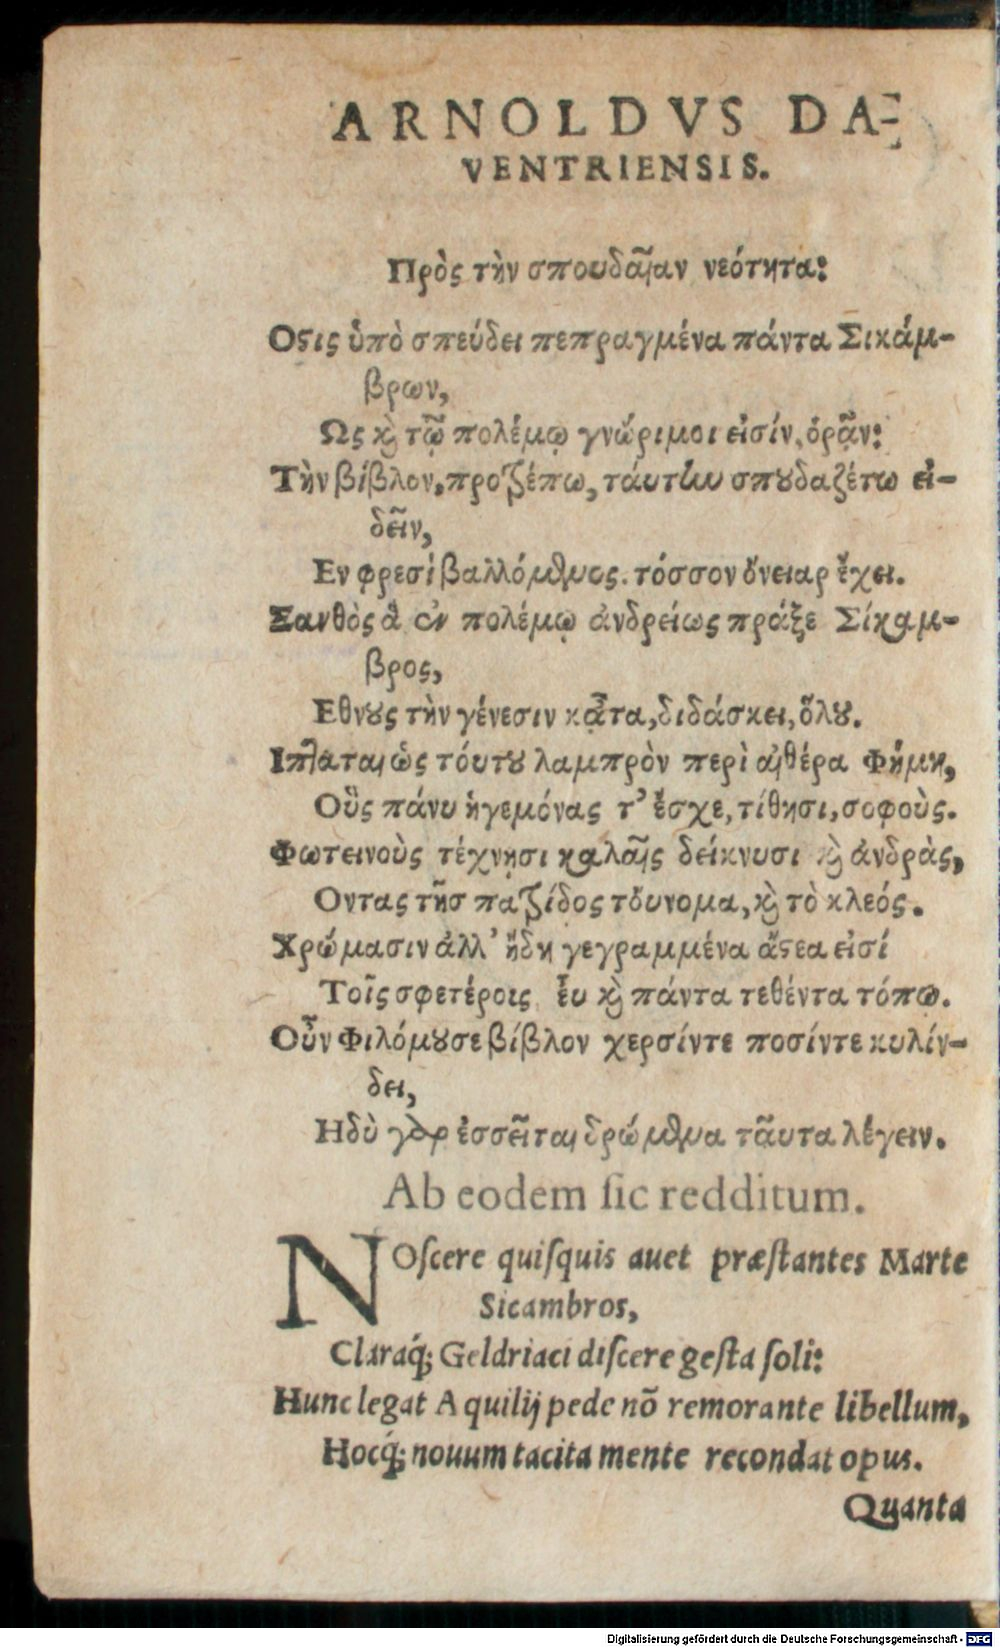 ARNOLDVS DA-
VENTRIENSIS.
Πρὸς τὴν σπουδαῖαν νεότητα:
Οϛις ὑπὸ σπεύδει πεπραγμένα πάντα Σικάμ-
βρων,
Ως ϗ τῷ πολέμῳ γνώριμοι εἰσίν, ὁρᾷν:
Τὴν βίβλον, προτρέπω, τάυτην σπȣδαζέτω εἰ-
δεῖν,
Εν φρεσί βαλλόμενος. τόσσον ὄνειαρ ἔχει.
Ξανθὸς ἃ ἐν πολέμῳ ἀνδρείως πράξε Σίκαμ-
βρος,
Εθνȣς τὴν γένεσιν κᾆτα, διδάσκει, ὅλȣ.
Ιπταται ὡς τόυτȣ λαμπρὸν περὶ αἰθέρα Φήμη,
Οὓς πάνυ ἡγεμόνας τ' ἔσχε, τίθησι, σοφοὺς.
Φωτεινοὺς τέχνῃσι καλαῖς δείκνυσι ϗ ἀνδρὰς,
Οντας τῆσ πατρίδος τὄυνομα, ϗ τὸ κλεός.
Χρώμασιν ἀλλ' ἤδη γεγραμμένα ἄϛεα εἰσί
Τοῖς σφετέροις ἐυ ϗ πάντα τεθέντα τόπῳ.
Οὖν Φιλόμȣσε βίβλον χερσίντε ποσίντε κυλίν-
δει,
Ηδὺ γὰρ ἐσσεῖται δρώμενα ταῦτα λέγειν.
Ab eodem ſic redditum.
NOſcere quiſquis auet præſtantes Marte
Sicambros,
Claraq́; Geldriaci diſcere geſta ſoli:
Hunc legat Aquilij pede nõ remorante libellum,
Hocq́; nouum tacita mente recondat opus.
Quanta
Digitalisierung gefördert durch die Deutsche Forschungsgemeinschaft - DFG